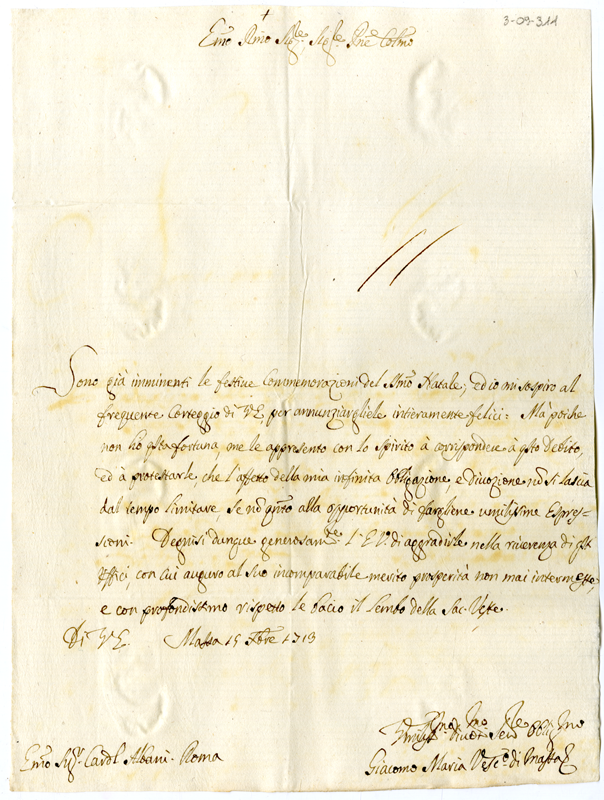 3-09-311
Emo Rmo Sig.re Sig.re Pne Colmo
Sono già imminenti le festive Commemorazioni del Smo Natale; ed io mi sospiro al
frequente Corteggio di V.E. per annunziargliele intieramente felici: Mà poiche
non ho qsta fortuna, me le appresento con lo Spirito à corrispondere à qsto Debito,
ed à protestarle che l'affetto della mia infinita Obligazione e Divozione nō si lascia
dal tempo limitare, se nō qnto alla opportunità di fargliene umilissime Espres-
sioni. Degnisi dunque generosam.te l'E.V. di aggradirle nella riverenza di qsti
Uffici, con cui auguro al Suo incomparabile merito prosperità non mai intermesse,
e con profondissimo rispetto le bacio il Lembo della Sac. Veste.
Di V.E. Massa 15 Xbre 1713
Divot Serv Obli
Emo Sig.r Cardl Albani. Roma
Giacomo Maria Vesc.o di